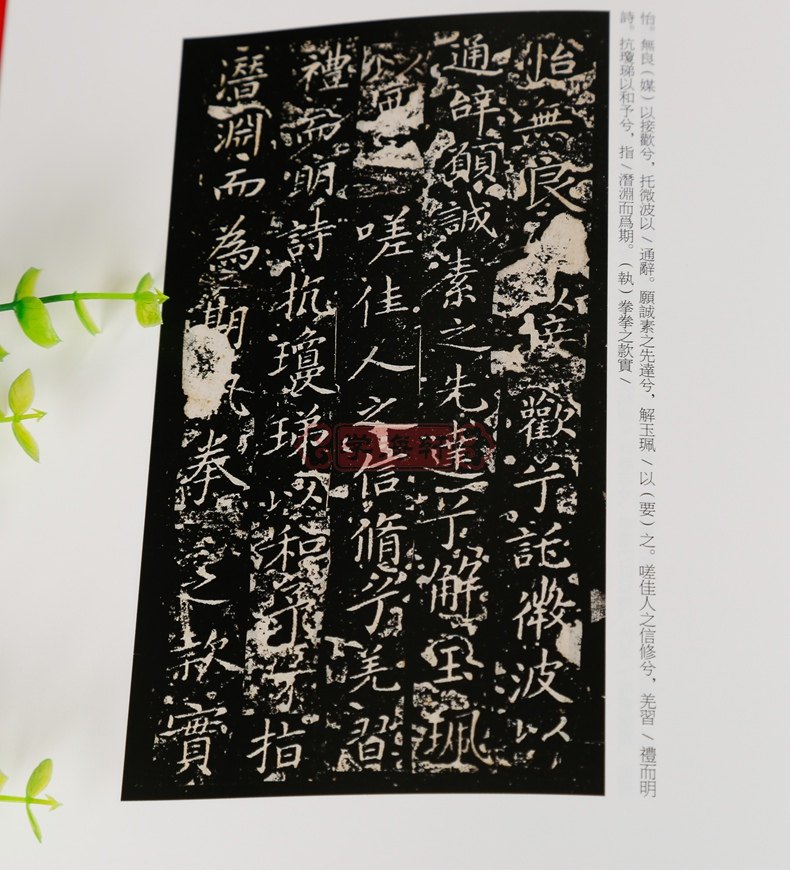 怡。無良（媒）以接歡兮，托微波以/通辭。願誠素之先達兮，解玉珮/以（要）之。嗟佳人之信修兮，羌習/禮而明
詩。抗瓊珶以和予兮，指/潛淵而爲期。（執）拳拳之款實/
怡無良以接歡兮託微波以
通辝願誠素之先達兮解玉珮
以嗟佳人之信脩兮羌習
禮而明詩抗瓊珶以和予兮指
潛淵而為期拳之款實
学海轩